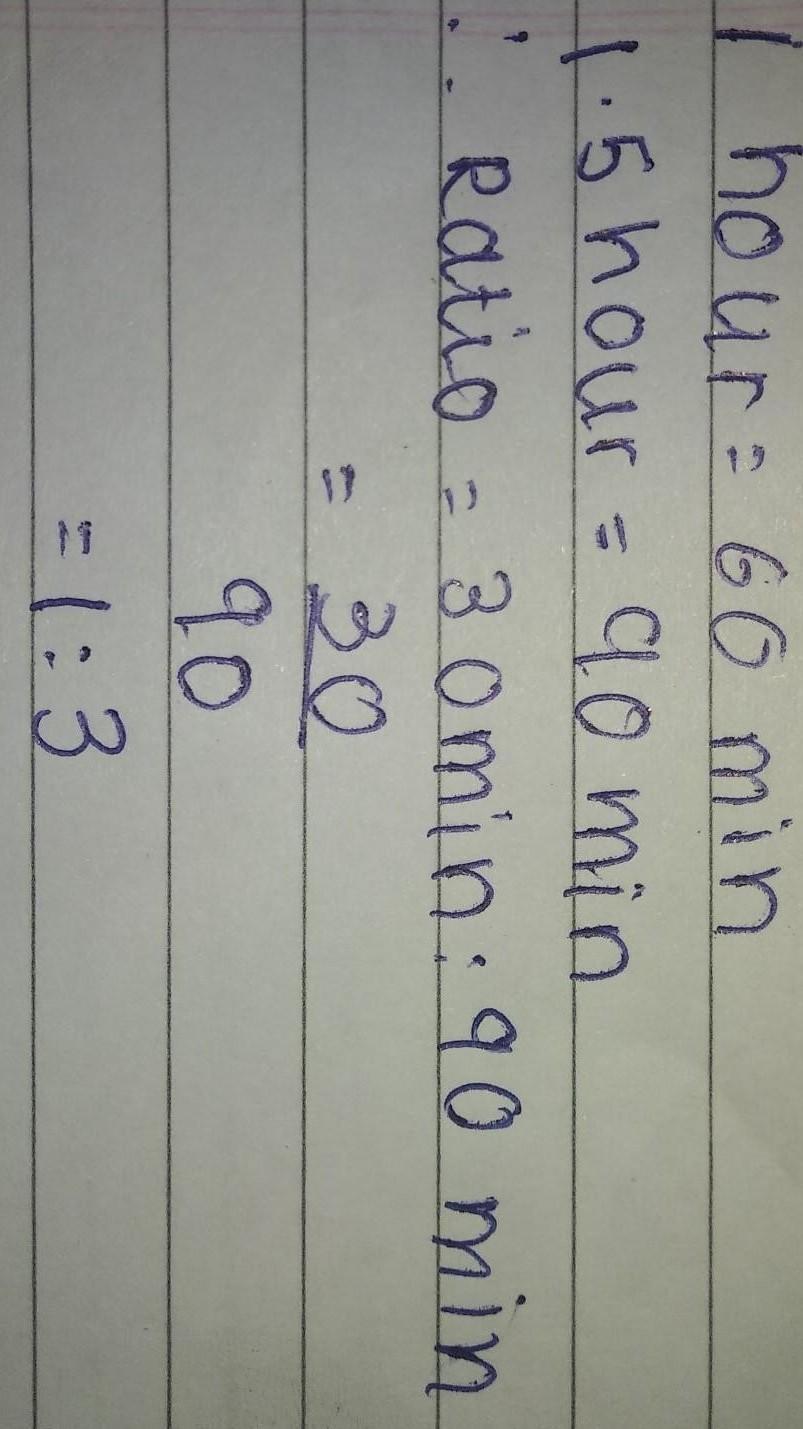 1 hour = 60 min
1.5 hour = 90 min
∴ Ratio = 30 min : 90 min
= 30
90
= 1 : 3